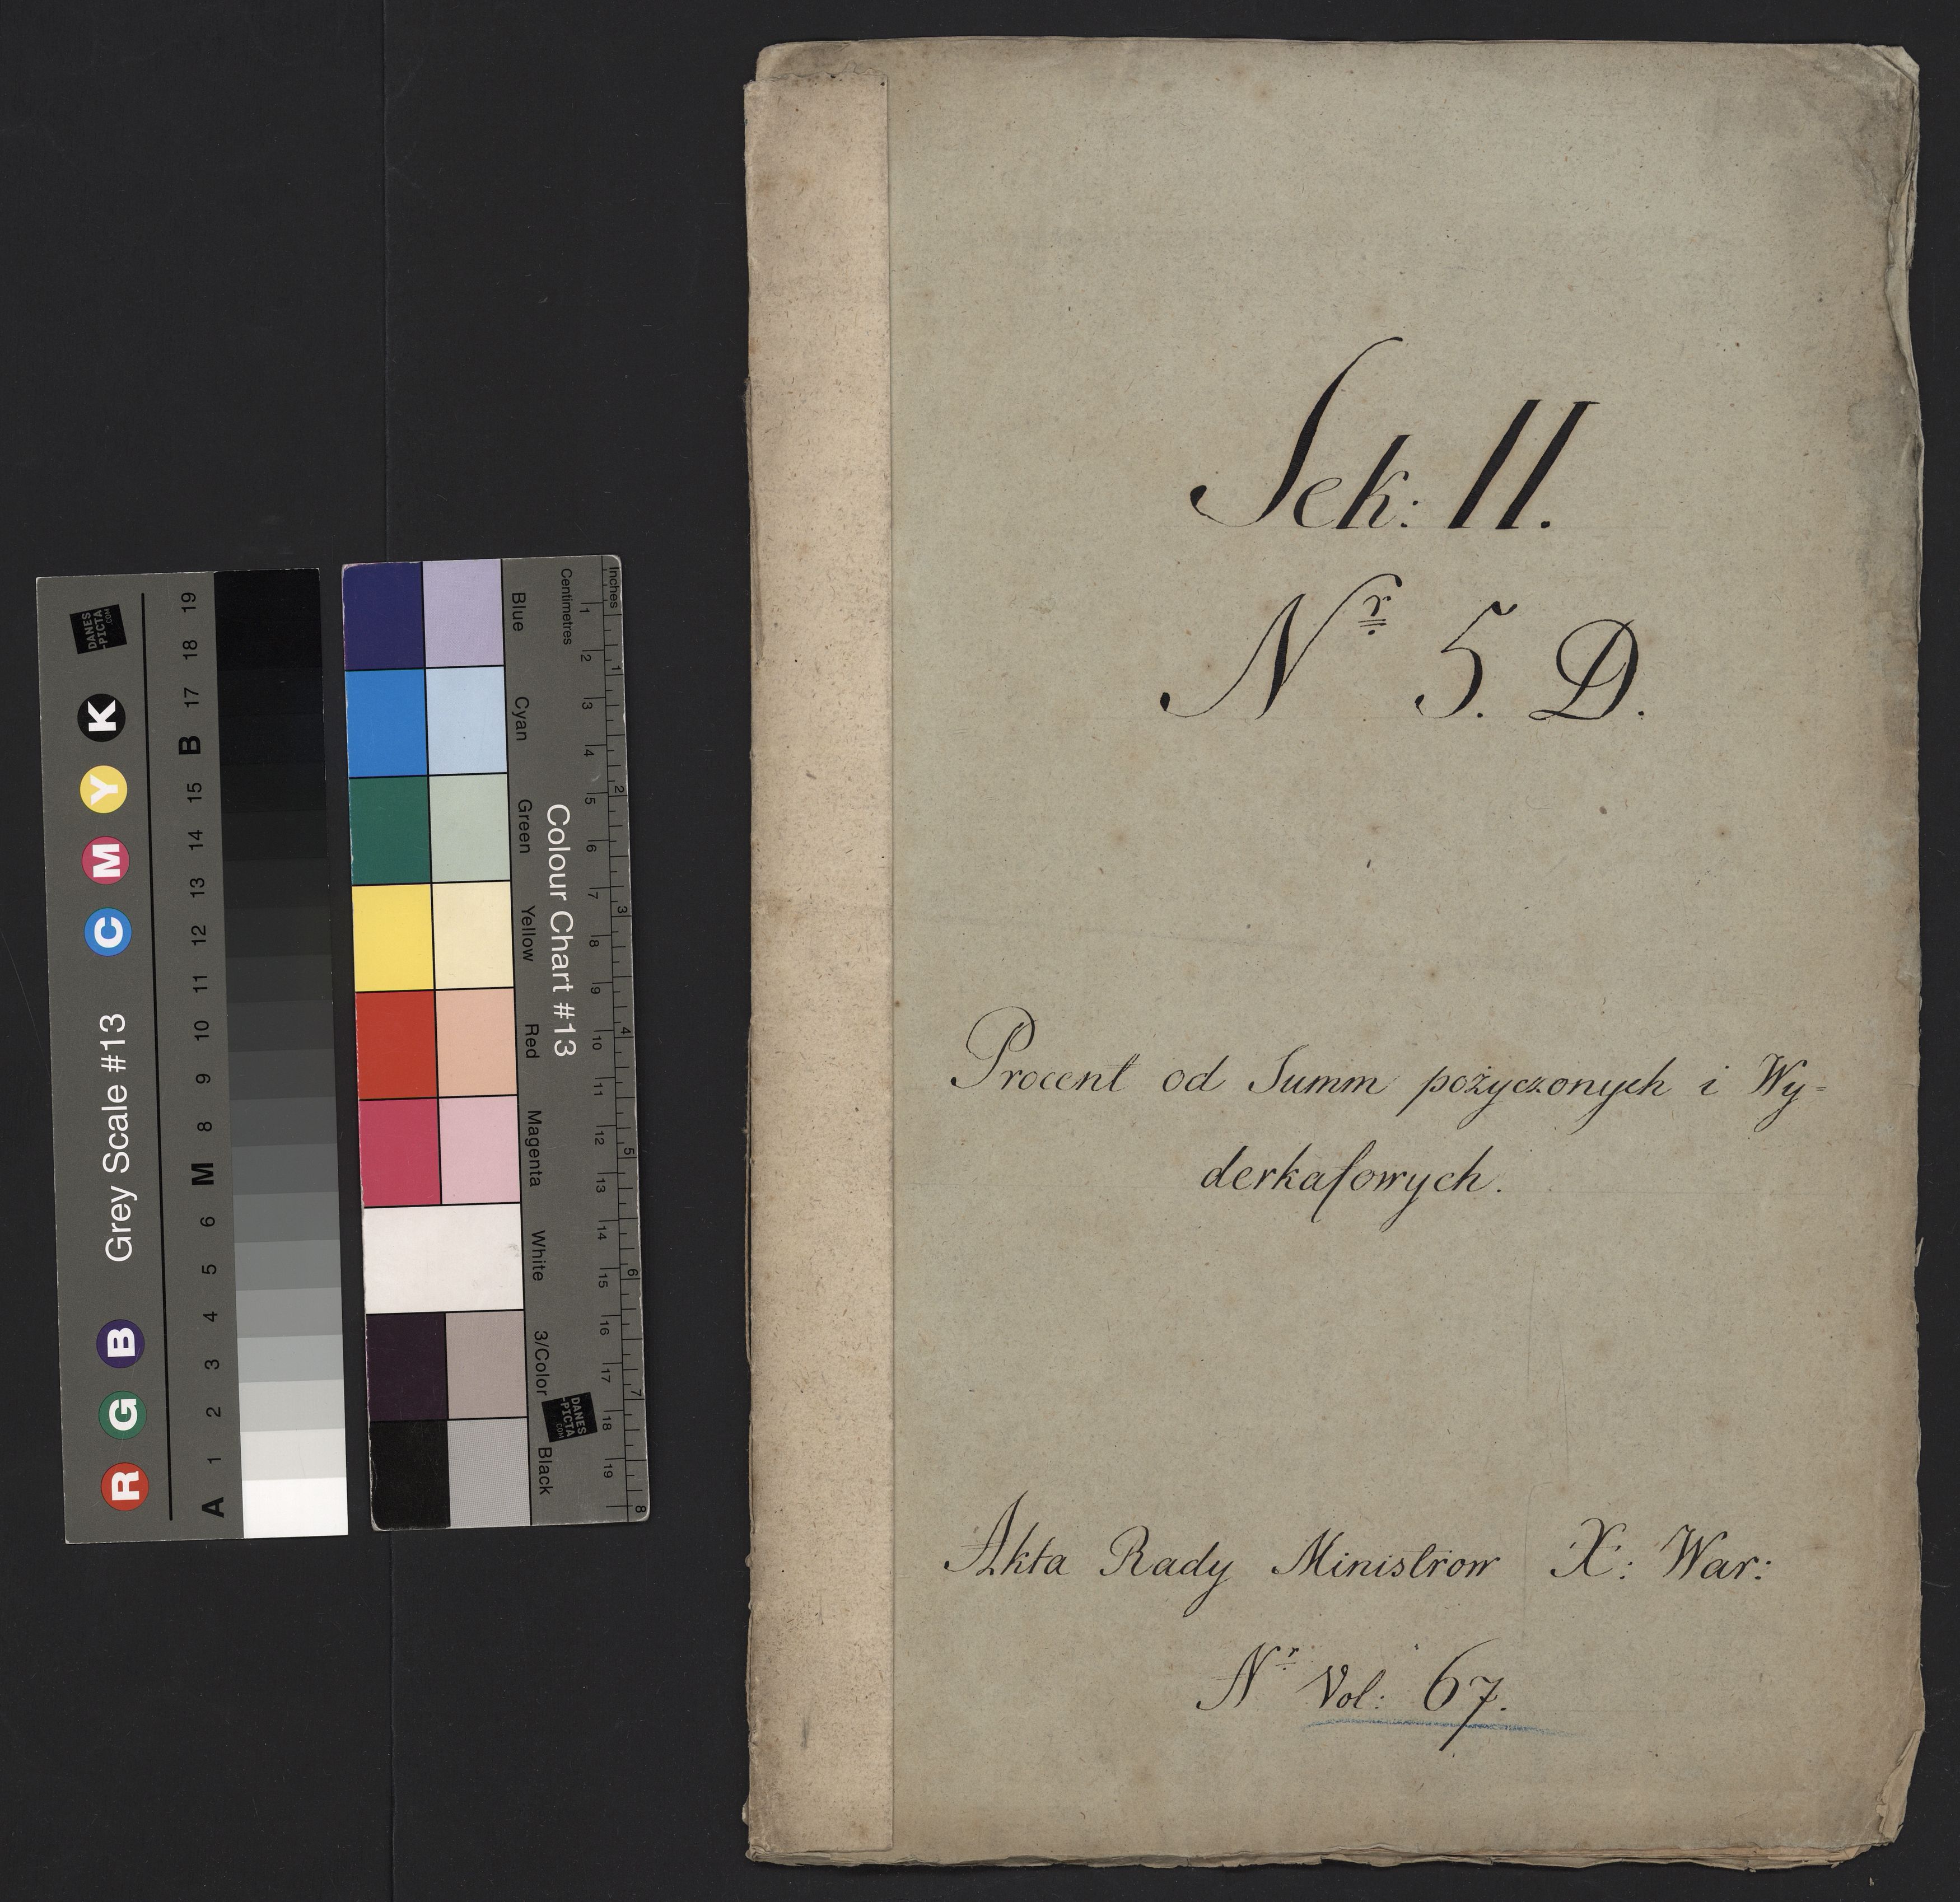 Sek: II.
Nr 5. D.
Procent od Summ pożyczonych i Wy=
derkafowych.
Akta Rady Ministrow X: War:
Nr Vol: 67.
Grey Scale #13
R G B C M Y K
A 1 2 3 4 5 6 M 8 9 10 11 12 13 14 15 B 17 18 19
DANES
-PICTA
.COM
Colour Chart #13
Blue Cyan Green Yellow Red Magenta White 3/Color Black
Centimetres 1 2 3 4 5 6 7 8 9 10 11 12 13 14 15 16 17 18 19
Inches 1 2 3 4 5 6 7 8
DANES
-PICTA
.COM